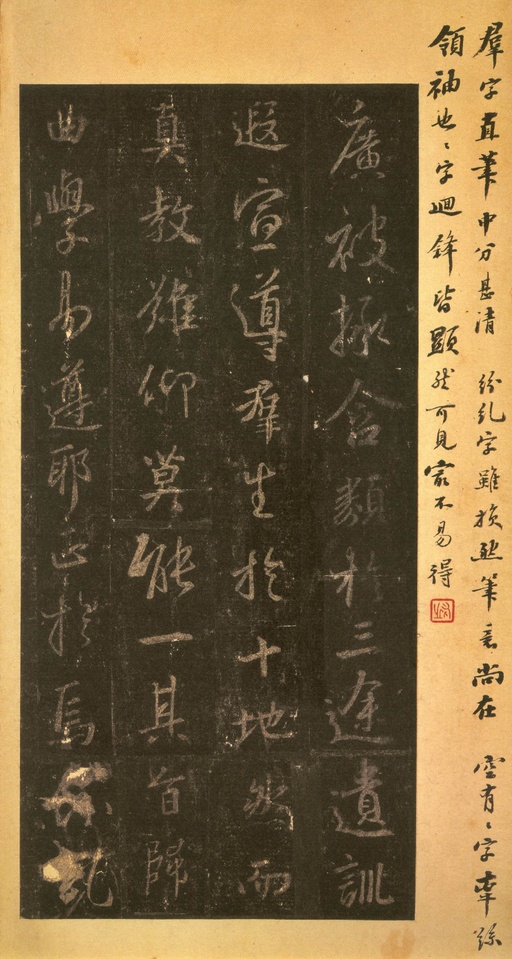 羣字直筆中分甚清 紛乱字雖損延筆意尚在 空有〻字牽繇
領袖也〻字迴鋒皆顯然可見寔不易得
廣彼拯含類於三途遺訓
遐宣導羣生於十地然而
真教難仰莫能一其旨歸
曲學易遵耶正於焉紛乱